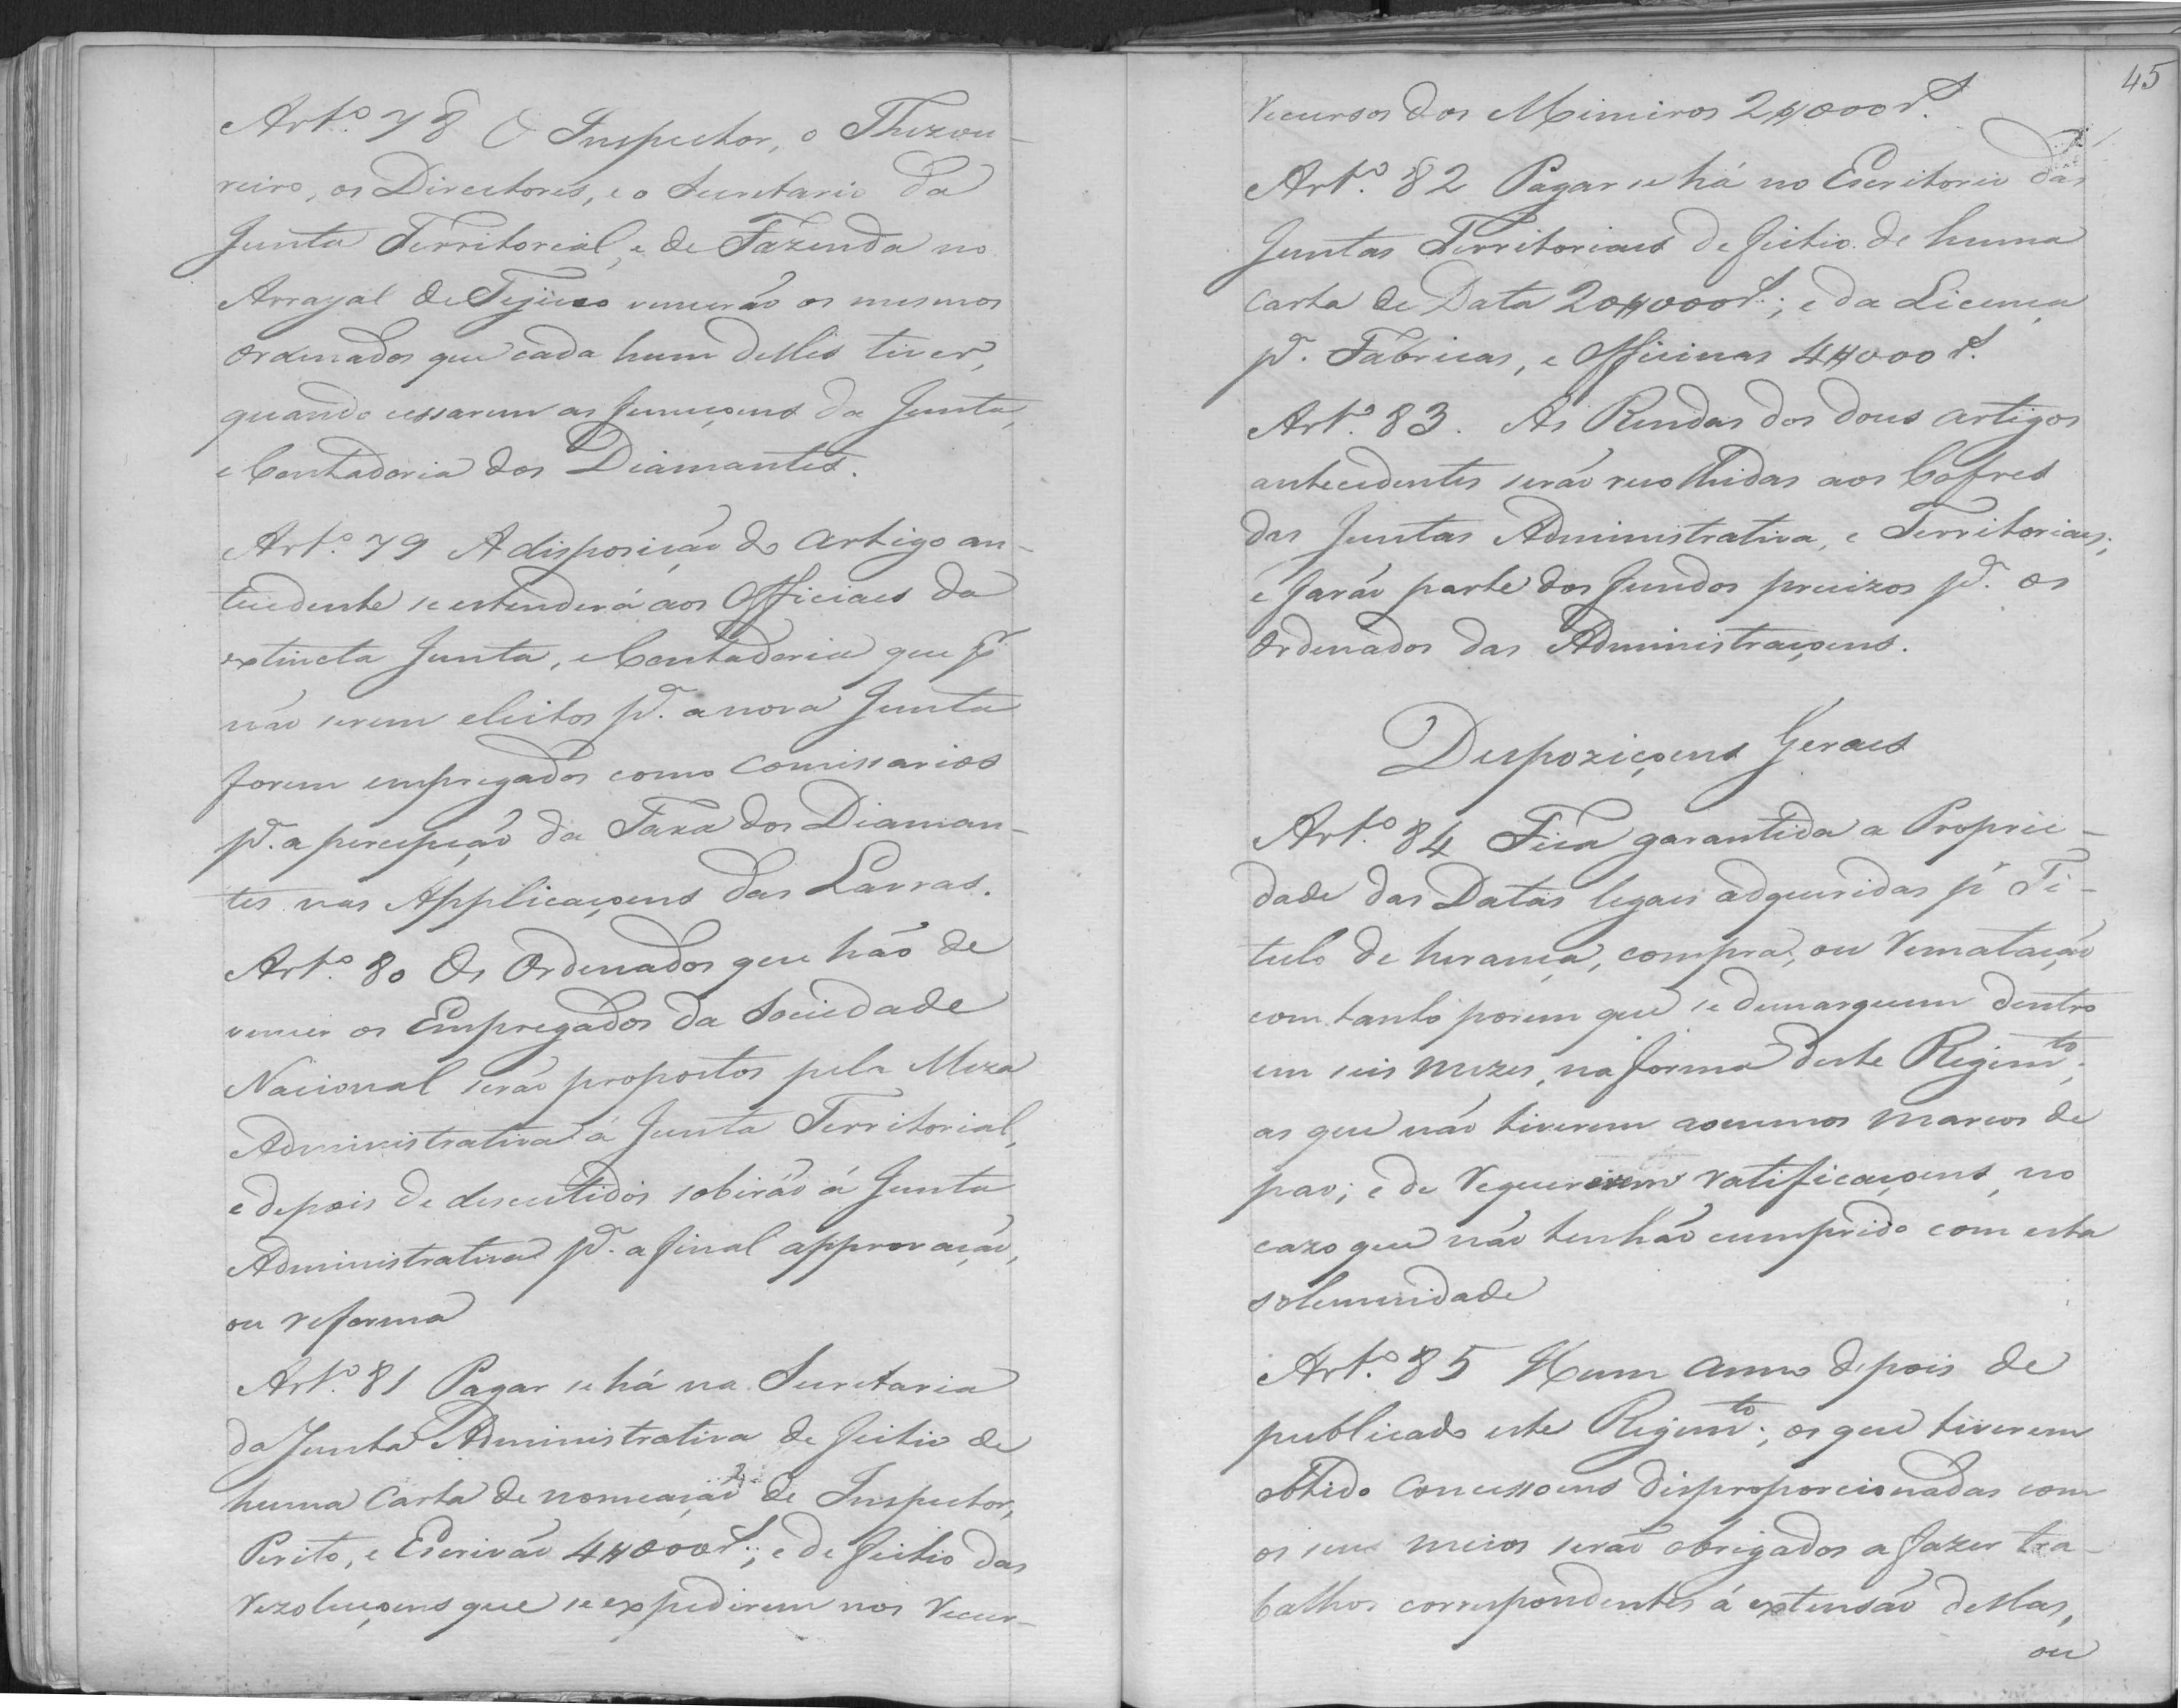 Artº. 78 O Inspector, o Thezou-
reiro, os Directores, e o Secretario da
Junta Territorial, e de Fazenda no
Arrayal de Tejuco vencerão os mesmos
Ordenados que cada hum delles tiver,
quando cessarem as funcçoens da Junta,
e Contadoria dos Diamantes.
Artº. 79 A disposição do artigo an-
tecedente se estenderá aos Officiaes da
extincta Junta, e Contadoria que pr
não serem eleitos pª. a nova Junta
forem empregados como Comissarios
pª. a percepção da Taxa dos Diaman-
tes nas Applicaçoens das Lavras.
Artº. 80 Os Ordenados que hão de
vencer os Empregados da Sociedade
Nacional serão propostos pela Meza
Administrativa á Junta Territorial,
e depois de descutidos sobirão á Junta
Administrativa pª. a final approvação,
ou reforma
Artº. 81 Pagar se há na Secretaria
da Junta Administrativa de feitio de
huma Carta de nomeação de Inspector,
Perito, e Escrivão 4$000rs; e de feitio das
rezoluçoens que se expedirem nos recur-
45
recursos dos Mineiros 2$000rs.
Artº. 82 Pagar se há no Escritorio das
Juntas Territoriaes de feitio de huma
Carta de Data 20$000rs; e da Licença
pª. Fabricas, e Officinas 4$000rs.
Artº. 83. As Rendas dos dous artigos
antecedentes serão recolhidas aos Cofres
das Juntas Administrativa, e Territoriaes;
e farão parte dos fundos precizos pª. os
Ordenados das Administraçoens.
Despoziçoens Geraes
Artº. 84 Fica garantida a Proprie-
dade das Datas legaes adqueridas pr Ti-
tulo de herança, compra, ou rematação
com tanto porem que se demarquem dentro
em seis mezes, na forma deste Regimto.
as que não tiverem ao menos marcos de
pao; e de requererem ratificaçoens, no
cazo que não tenhão cumprido com esta
solemnidade
Artº. 85 Hum anno depois de
publicado este Regimto.; os que tiverem
obtido concessoens disproporcionadas com
os seus meios serão obrigados a fazer tra-
balhos correspondentes á extensão dellas,
ou